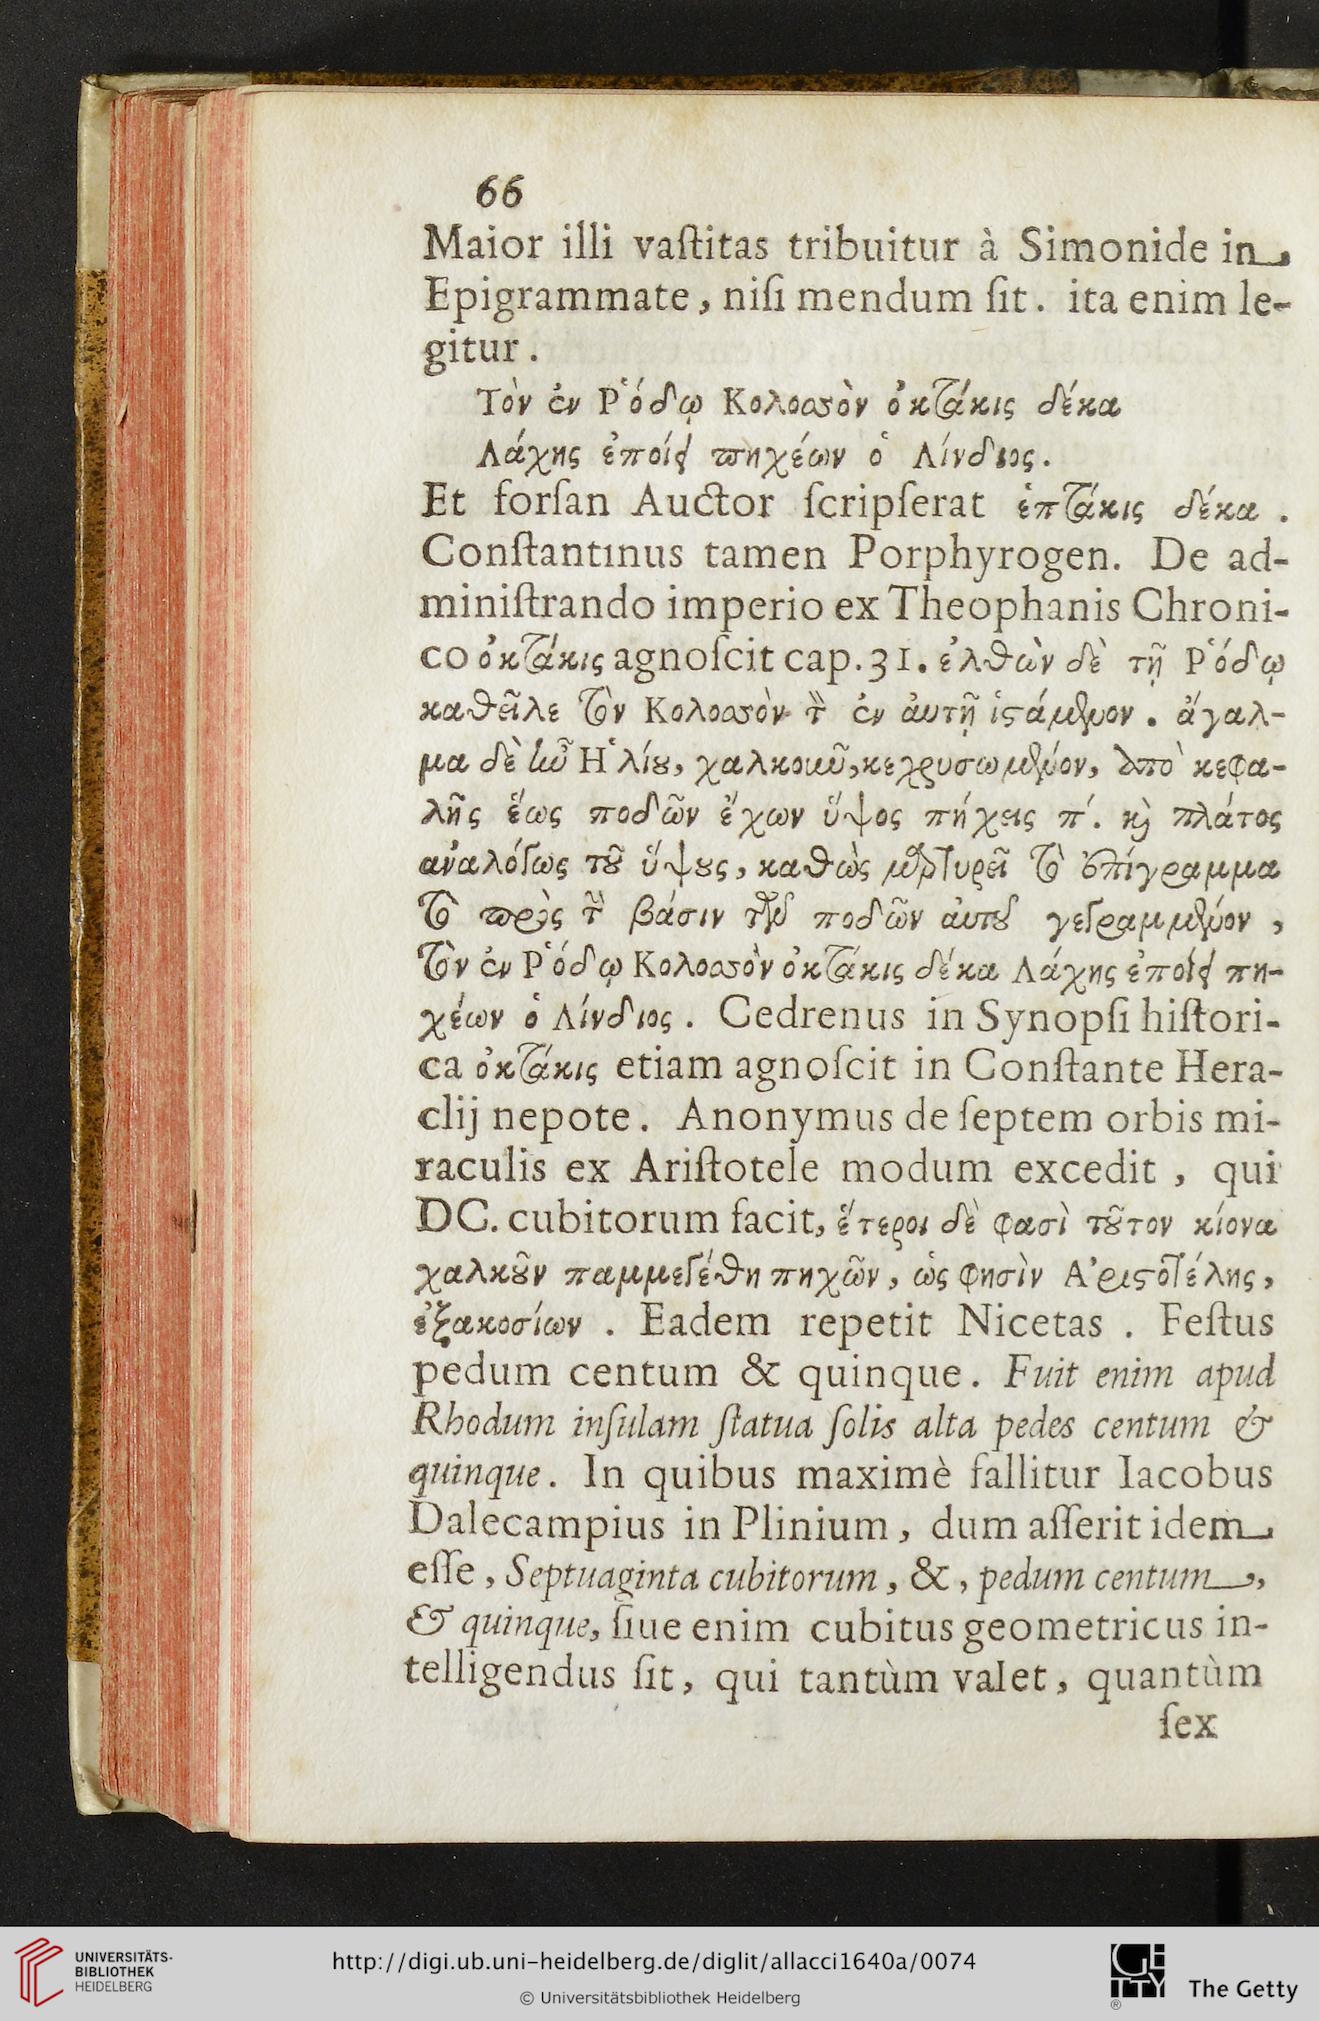 66
Maior illi vaſtitas tribuitur à Simonide in
Epigrammate, niſi mendum ſit. ita enim le-
gitur.
Τὸν ἐν Ῥόδῳ Κολοσσὸν ὀκτάκις δέκα
Λάχης ἐποίει πηχέων ὁ Λίνδιος.
Et forſan Auctor ſcripſerat ἑπτάκις δέκα.
Conſtantinus tamen Porphyrogen. De ad-
miniſtrando imperio ex Theophanis Chroni-
co ὀκτάκις agnoſcit cap. 31. ἐλθὼν δὲ τῇ Ῥόδῳ
καθεῖλε τὸν Κολοσσὸν τὸν ἐν ἀυτῇ ἱστάμενον. ἄγαλ-
μα δὲ ἦν Ἡλίου, χαλκοῦν, κεχρυσωμένον, ἀπὸ κεφα-
λῆς ἕως ποδῶν ἔχων ὕψος πήχεις π΄. καὶ πλάτος
ἀναλόγως τοῦ ὕψους, καθὼς μαρτυρεῖ τὸ ἐπίγραμμα
τὸ πρὸς τὴν βάσιν τῶν ποδῶν ἀυτοῦ γεγραμμένον,
τὸν ἐν Ῥόδῳ Κολοσσὸν ὀκτάκις δέκα Λάχης ἐποίει πη-
χέων ὁ Λίνδιος. Cedrenus in Synopſi hiſtori-
ca ὀκτάκις etiam agnoſcit in Conſtante Hera-
clij nepote. Anonymus de ſeptem orbis mi-
raculis ex Ariſtotele modum excedit, qui
DC. cubitorum facit, ἕτεροι δὲ φασὶ τοῦτον κίονα
χαλκοῦν παμμεγέθη πηχῶν, ὡς φησὶν Ἀριστοτέλης,
ἑξακοσίων. Eadem repetit Nicetas. Feſtus
pedum centum & quinque. Fuit enim apud
Rhodum inſulam ſtatua ſolis alta pedes centum &
quinque. In quibus maximè fallitur Iacobus
Dalecampius in Plinium, dum aſſerit idem
eſſe, Septuaginta cubitorum, &, pedum centum,
& quinque, ſiue enim cubitus geometricus in-
telligendus ſit, qui tantùm valet, quantùm
ſex
UNIVERSITÄTS-
BIBLIOTHEK
HEIDELBERG
http://digi.ub.uni-heidelberg.de/diglit/allacci1640a/0074
© Universitätsbibliothek Heidelberg
GETTY
®
The Getty